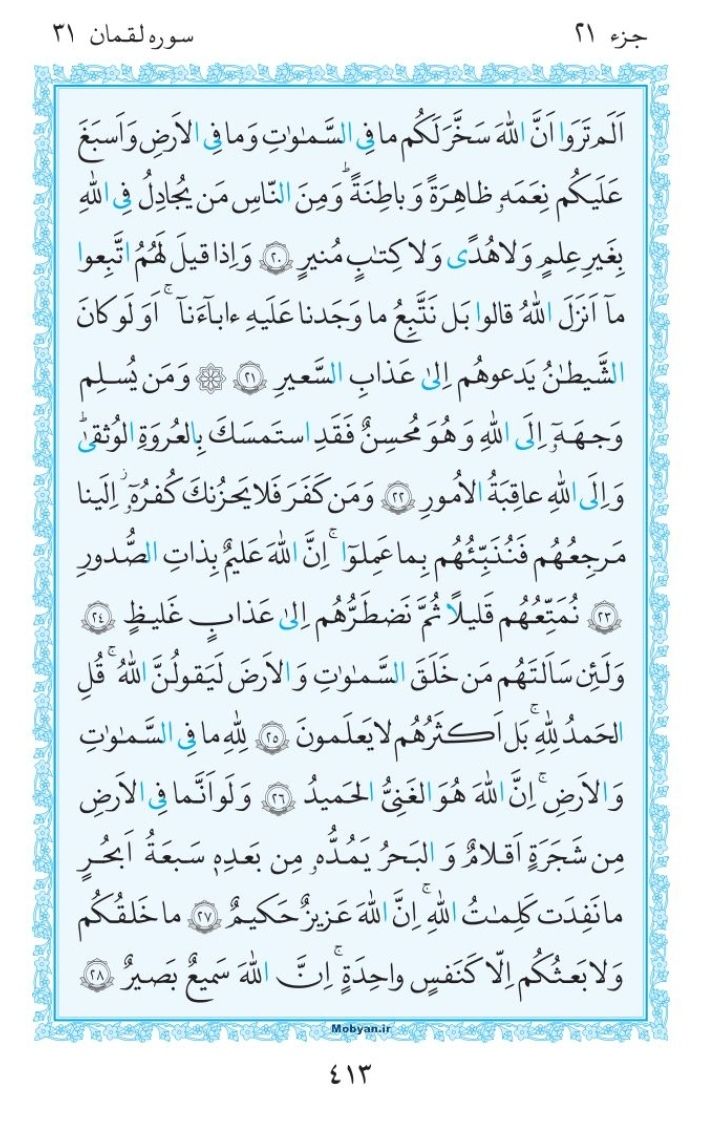 جزء ٢١
سوره لقمان ٣١
اَلَم تَرَوا اَنَّ اللّٰهَ سَخَّرَ لَكُم ما فِى السَّمٰوٰتِ وَ ما فِى الاَرضِ وَ اَسبَغَ
عَلَيكُم نِعَمَهٗ ظاهِرَةً وَ باطِنَةً ۗ وَ مِنَ النّاسِ مَن يُجادِلُ فِى اللّٰهِ
بِغَيرِ عِلمٍ وَ لا هُدًى وَ لا كِتٰبٍ مُنيرٍ ﴿٢٠﴾ وَ اِذا قيلَ لَهُمُ اتَّبِعوا
مآ اَنزَلَ اللّٰهُ قالوا بَل نَتَّبِعُ ما وَجَدنا عَلَيهِ ءابآءَنآ ۚ اَوَ لَو كانَ
الشَّيطٰنُ يَدعوهُم اِلىٰ عَذابِ السَّعيرِ ﴿٢١﴾ ۞ وَ مَن يُسلِم
وَجهَهٗٓ اِلَى اللّٰهِ وَ هُوَ مُحسِنٌ فَقَدِ استَمسَكَ بِالعُروَةِ الوُثقىٰ ۗ
وَ اِلَى اللّٰهِ عاقِبَةُ الاُمورِ ﴿٢٢﴾ وَ مَن كَفَرَ فَلا يَحزُنكَ كُفرُهٗٓ ۚ اِلَينا
مَرجِعُهُم فَنُنَبِّئُهُم بِما عَمِلوٓا ۚ اِنَّ اللّٰهَ عَليمٌ بِذاتِ الصُّدورِ
﴿٢٣﴾ نُمَتِّعُهُم قَليلًا ثُمَّ نَضطَرُّهُم اِلىٰ عَذابٍ غَليظٍ ﴿٢٤﴾
وَ لَئِن سَاَلتَهُم مَن خَلَقَ السَّمٰوٰتِ وَ الاَرضَ لَيَقولُنَّ اللّٰهُ ۚ قُلِ
الحَمدُ لِلّٰهِ ۚ بَل اَكثَرُهُم لا يَعلَمونَ ﴿٢٥﴾ لِلّٰهِ ما فِى السَّمٰوٰتِ
وَ الاَرضِ ۚ اِنَّ اللّٰهَ هُوَ الغَنِىُّ الحَميدُ ﴿٢٦﴾ وَ لَو اَنَّما فِى الاَرضِ
مِن شَجَرَةٍ اَقلامٌ وَ البَحرُ يَمُدُّهٗ مِن بَعدِهٖ سَبعَةُ اَبحُرٍ
ما نَفِدَت كَلِمٰتُ اللّٰهِ ۚ اِنَّ اللّٰهَ عَزيزٌ حَكيمٌ ﴿٢٧﴾ ما خَلقُكُم
وَ لا بَعثُكُم اِلّا كَنَفسٍ واحِدَةٍ ۚ اِنَّ اللّٰهَ سَميعٌ بَصيرٌ ﴿٢٨﴾
Mobyan.ir
٤١٣